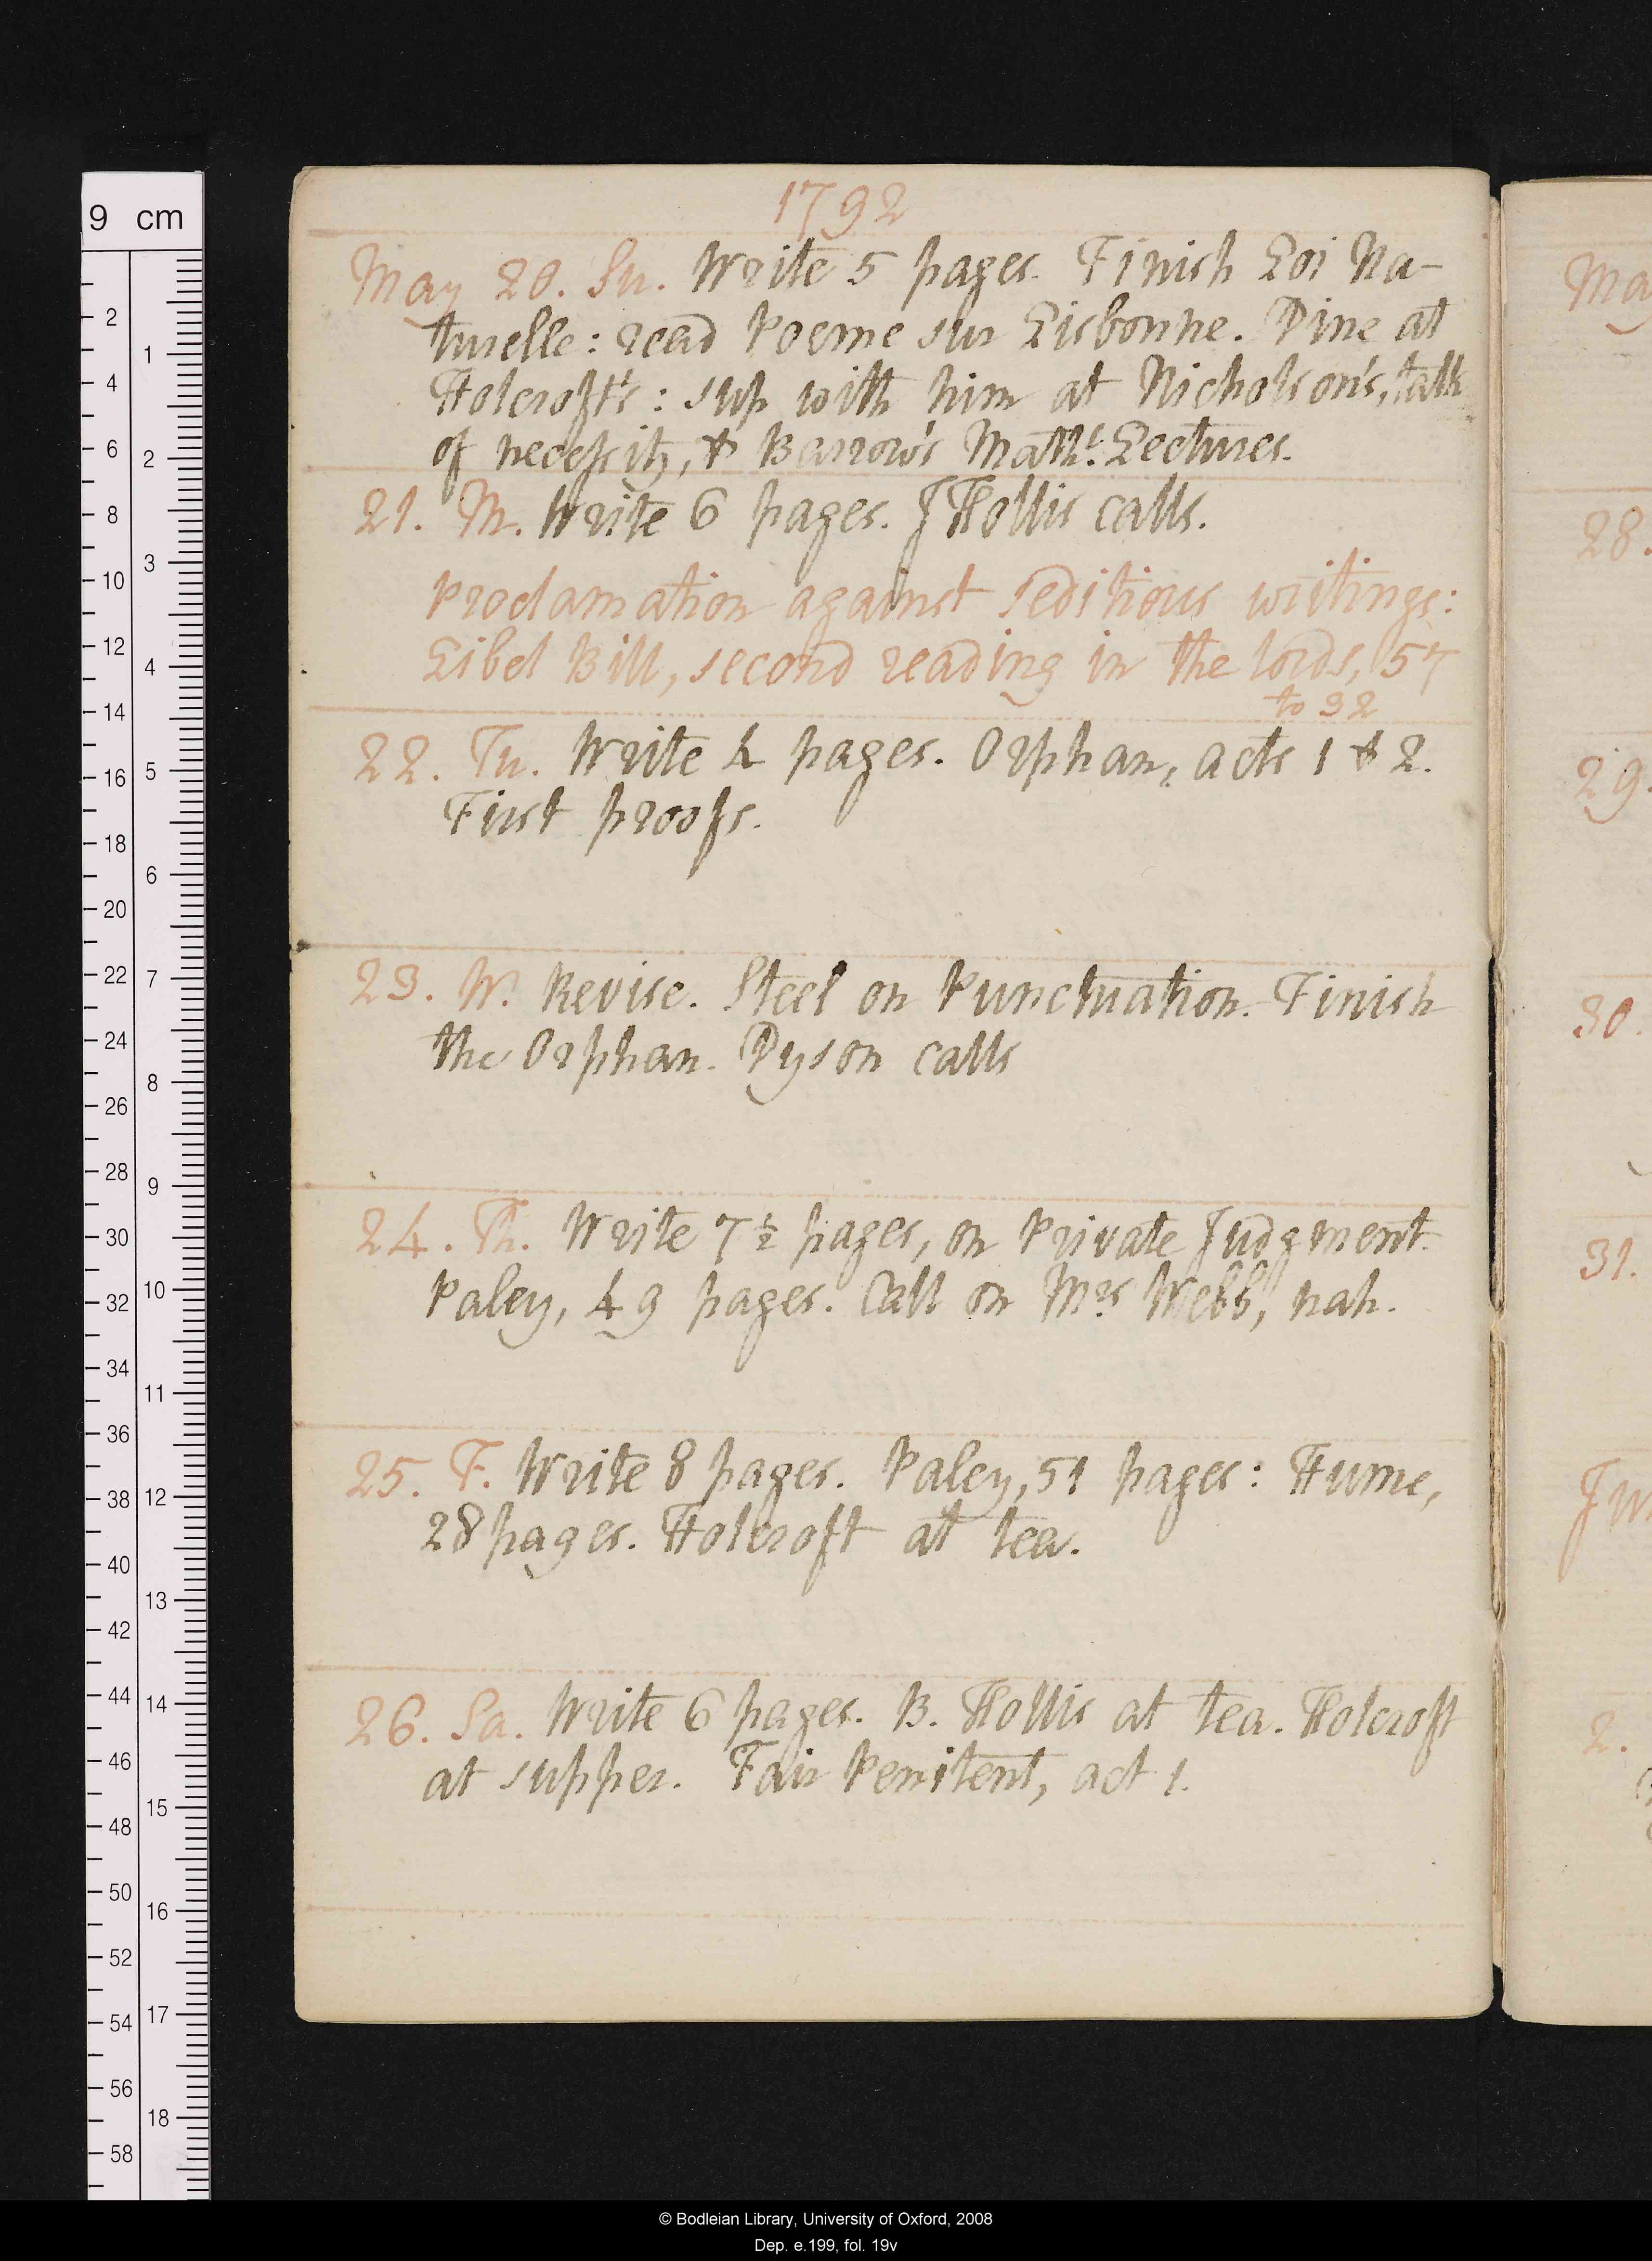 1792
May 20. Su. Write 5 pages. Finish Loi Na-
turelle: read Poeme sur Lisbonne. Dine at
Holcroft's: sup with him at Nicholson's, talk
of necessity, & Barrow's Math.l Lectures.
21. M. Write 6 pages. J Hollis calls.
Proclamation against seditious writings:
Libel Bill, second reading in the lords, 57
to 32
22. Tu. Write 4 pages. Orphan, acts 1 & 2.
First proofs.
23. W. Revise. Steel on Punctuation. Finish
the Orphan. Dyson calls
24. Th. Write 7½ pages, on Private Judgment.
Paley, 49 pages. Call on Mrs Webb, nah.
25. F. Write 8 pages. Paley, 51 pages: Hume,
28 pages. Holcroft at tea.
26. Sa. Write 6 pages. B. Hollis at tea. Holcroft
at supper. Fair Penitent, act 1.
Ma
28.
29.
30.
31.
Ju
2.
9 cm
2
4
6
8
10
12
14
16
18
20
22
24
26
28
30
32
34
36
38
40
42
44
46
48
50
52
54
56
58
1
2
3
4
5
6
7
8
9
10
11
12
13
14
15
16
17
18
© Bodleian Library, University of Oxford, 2008
Dep. e.199, fol. 19v